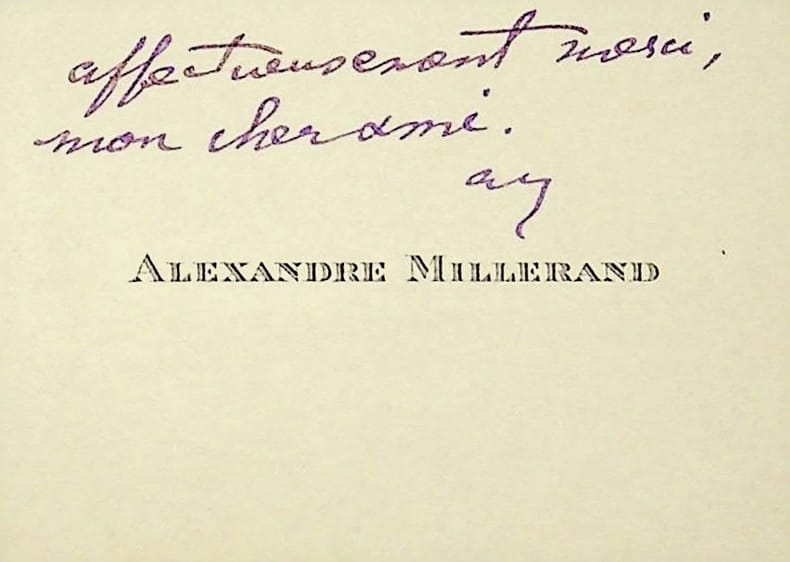 affectueusement merci,
mon cher ami.
AM
ALEXANDRE MILLERAND